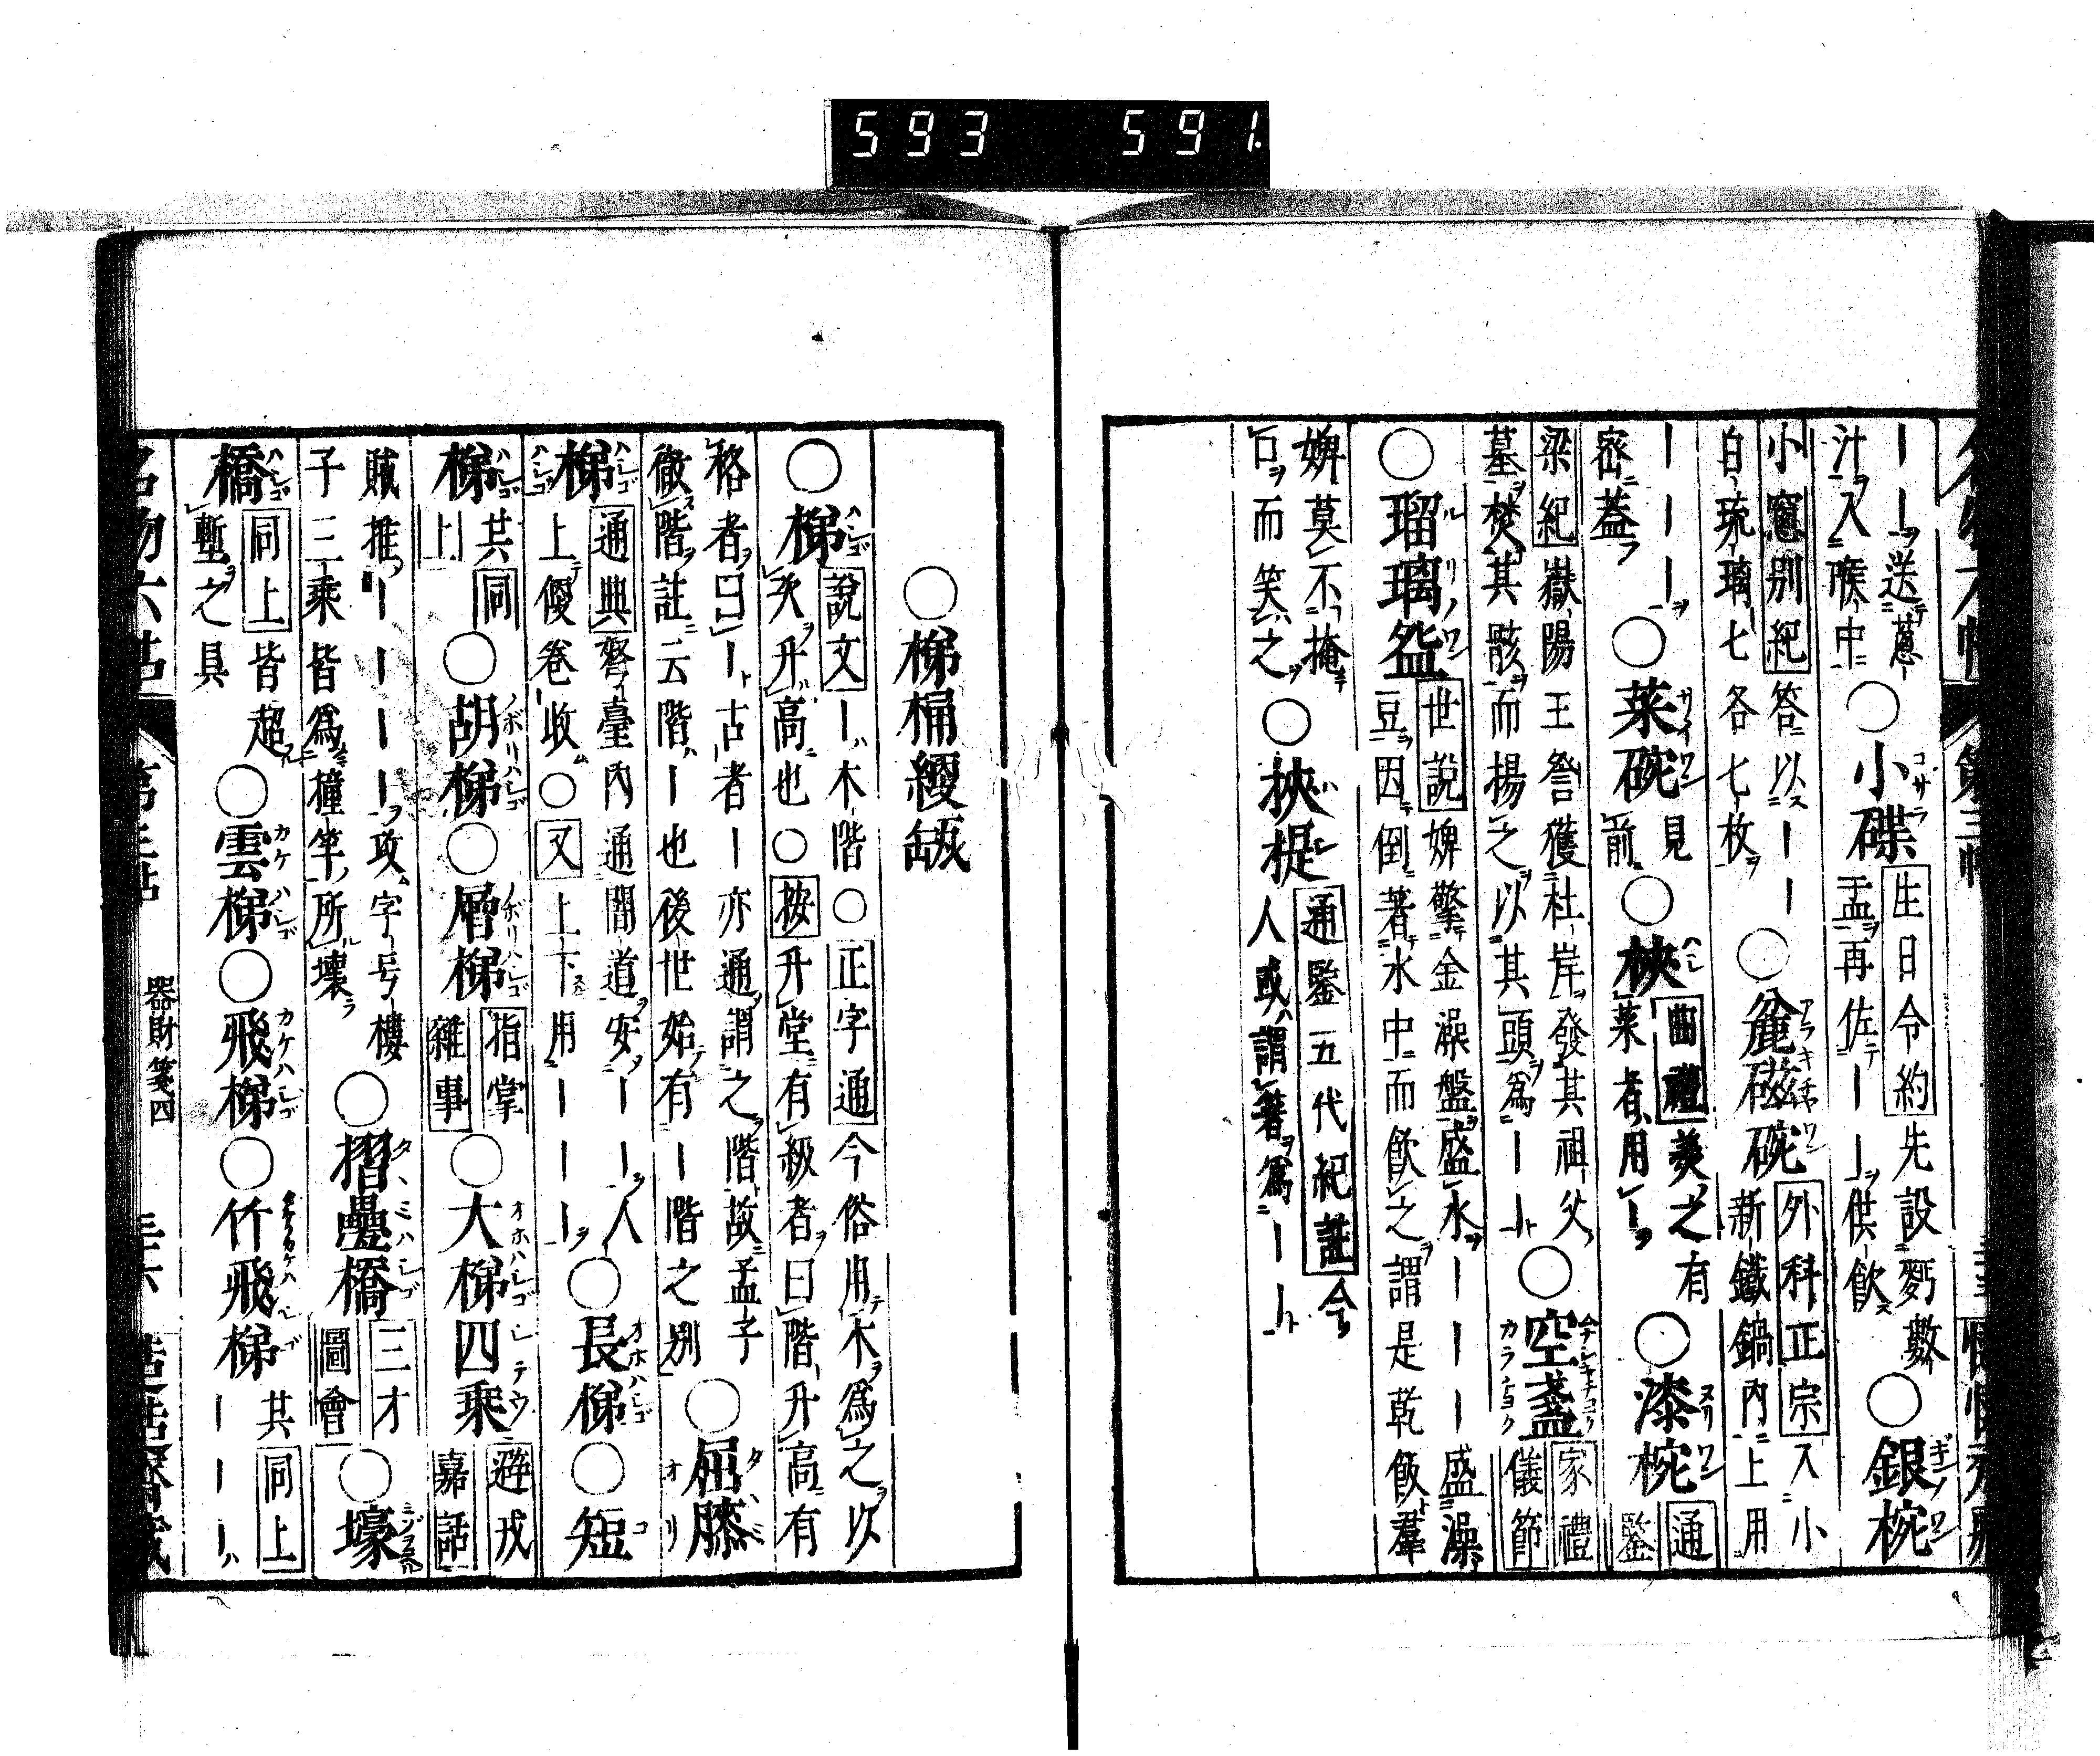 593 591
｜｜送葱
汁入喉中
○小碟
生日令約先設
盂再佐｜｜供飲
○銀椀
小窓別紀答以｜｜
白琉璃七各七枚
○麄磁碗
外科正宗入小
新鐵鍋內上用
｜｜｜
密蓋
○菜碗
見
前
○梜
曲禮羹之有
菜者用｜
○漆椀
通
鑒
梁紀嶽陽王詧獲杜岸發其祖父
墓焚其骸而揚之以其頭爲｜
○空盞
家禮
儀節
○瑠璃盌
世說婢擎金澡盤盛水｜｜｜盛澡
豆因倒著水中而飲之謂是乾飯羣
婢莫不掩
口而笑之
○梜提
通鑒五代紀註今
人或謂箸爲｜｜
○梯桶纓缻
○梯
說文｜木階○正字通今俗用木爲之以
升高也○按升堂有級者曰階升高有
格者曰｜古者｜亦通謂之階故孟子
徹階註云階｜也後世始有｜階之別
○屈膝
梯
通典
臺內通闇道安｜｜人
上便卷收○又上下用｜｜｜
○長梯
○短
梯
共同
上
○胡梯
○層梯
指掌
雜事
○大梯四乘
遊戎
嘉話
賊推｜｜｜｜攻字号樓
子三乘皆爲撞竿所壞
○摺疊橋
三才
圖會
○壕
橋
同上皆超
塹之具
○雲梯
○飛梯
○竹飛梯
共同上
｜｜｜
器財箋四